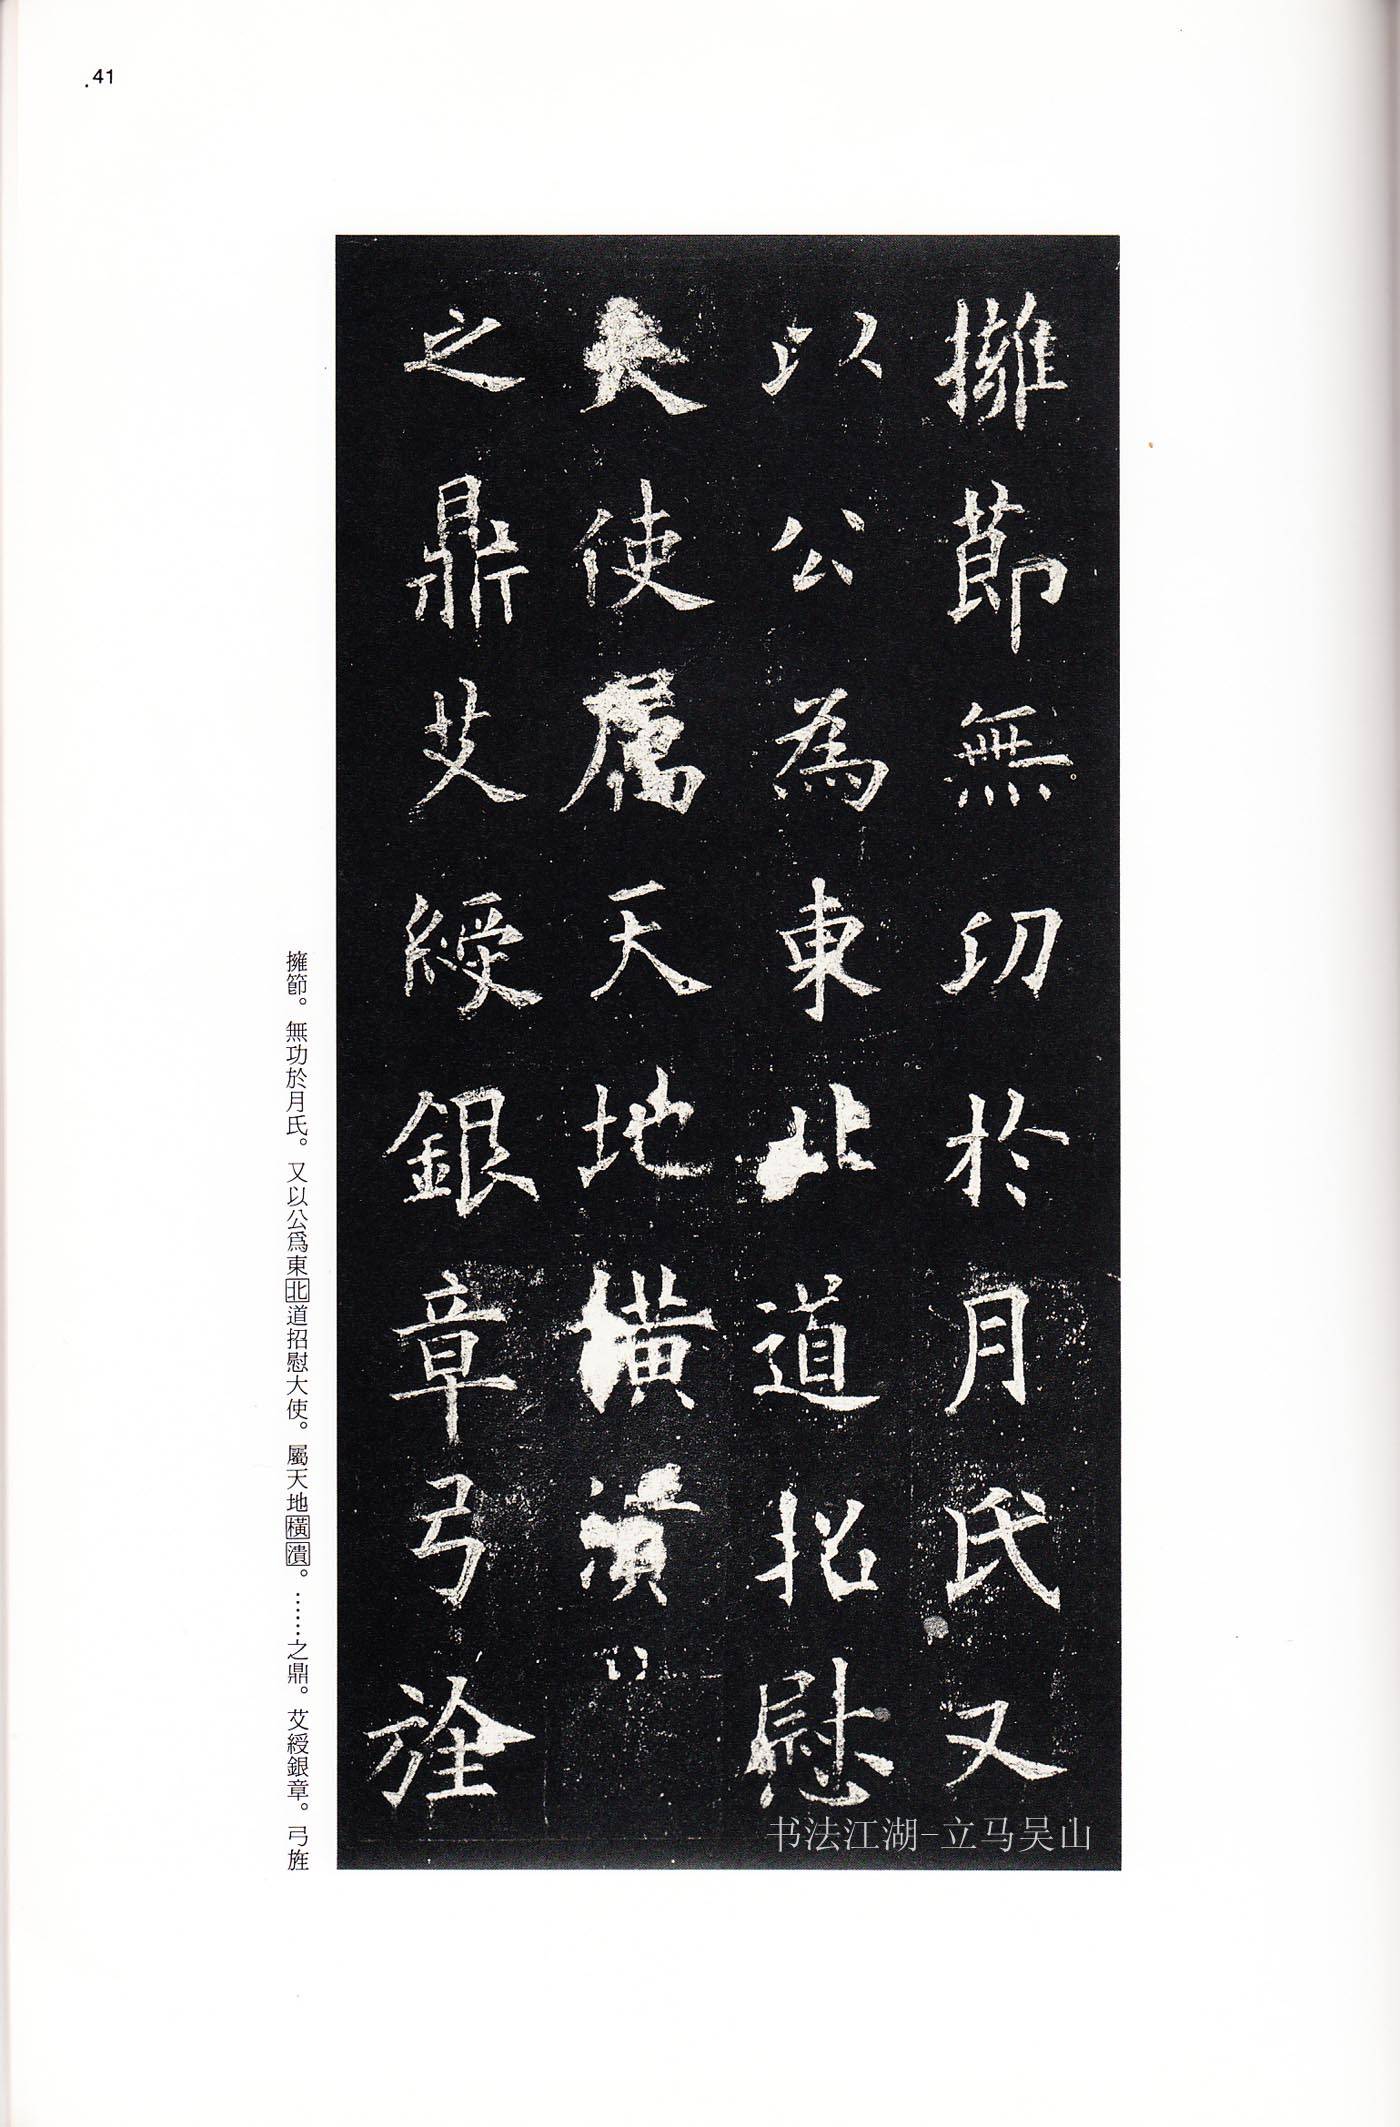 41
擁節無功於月氏又
以公為東北道招慰
大使屬天地橫潰
之鼎艾綬銀章弓旌
擁節。無功於月氏。又以公爲東北道招慰大使。屬天地橫潰。……之鼎。艾綬銀章。弓旌
书法江湖-立马吴山